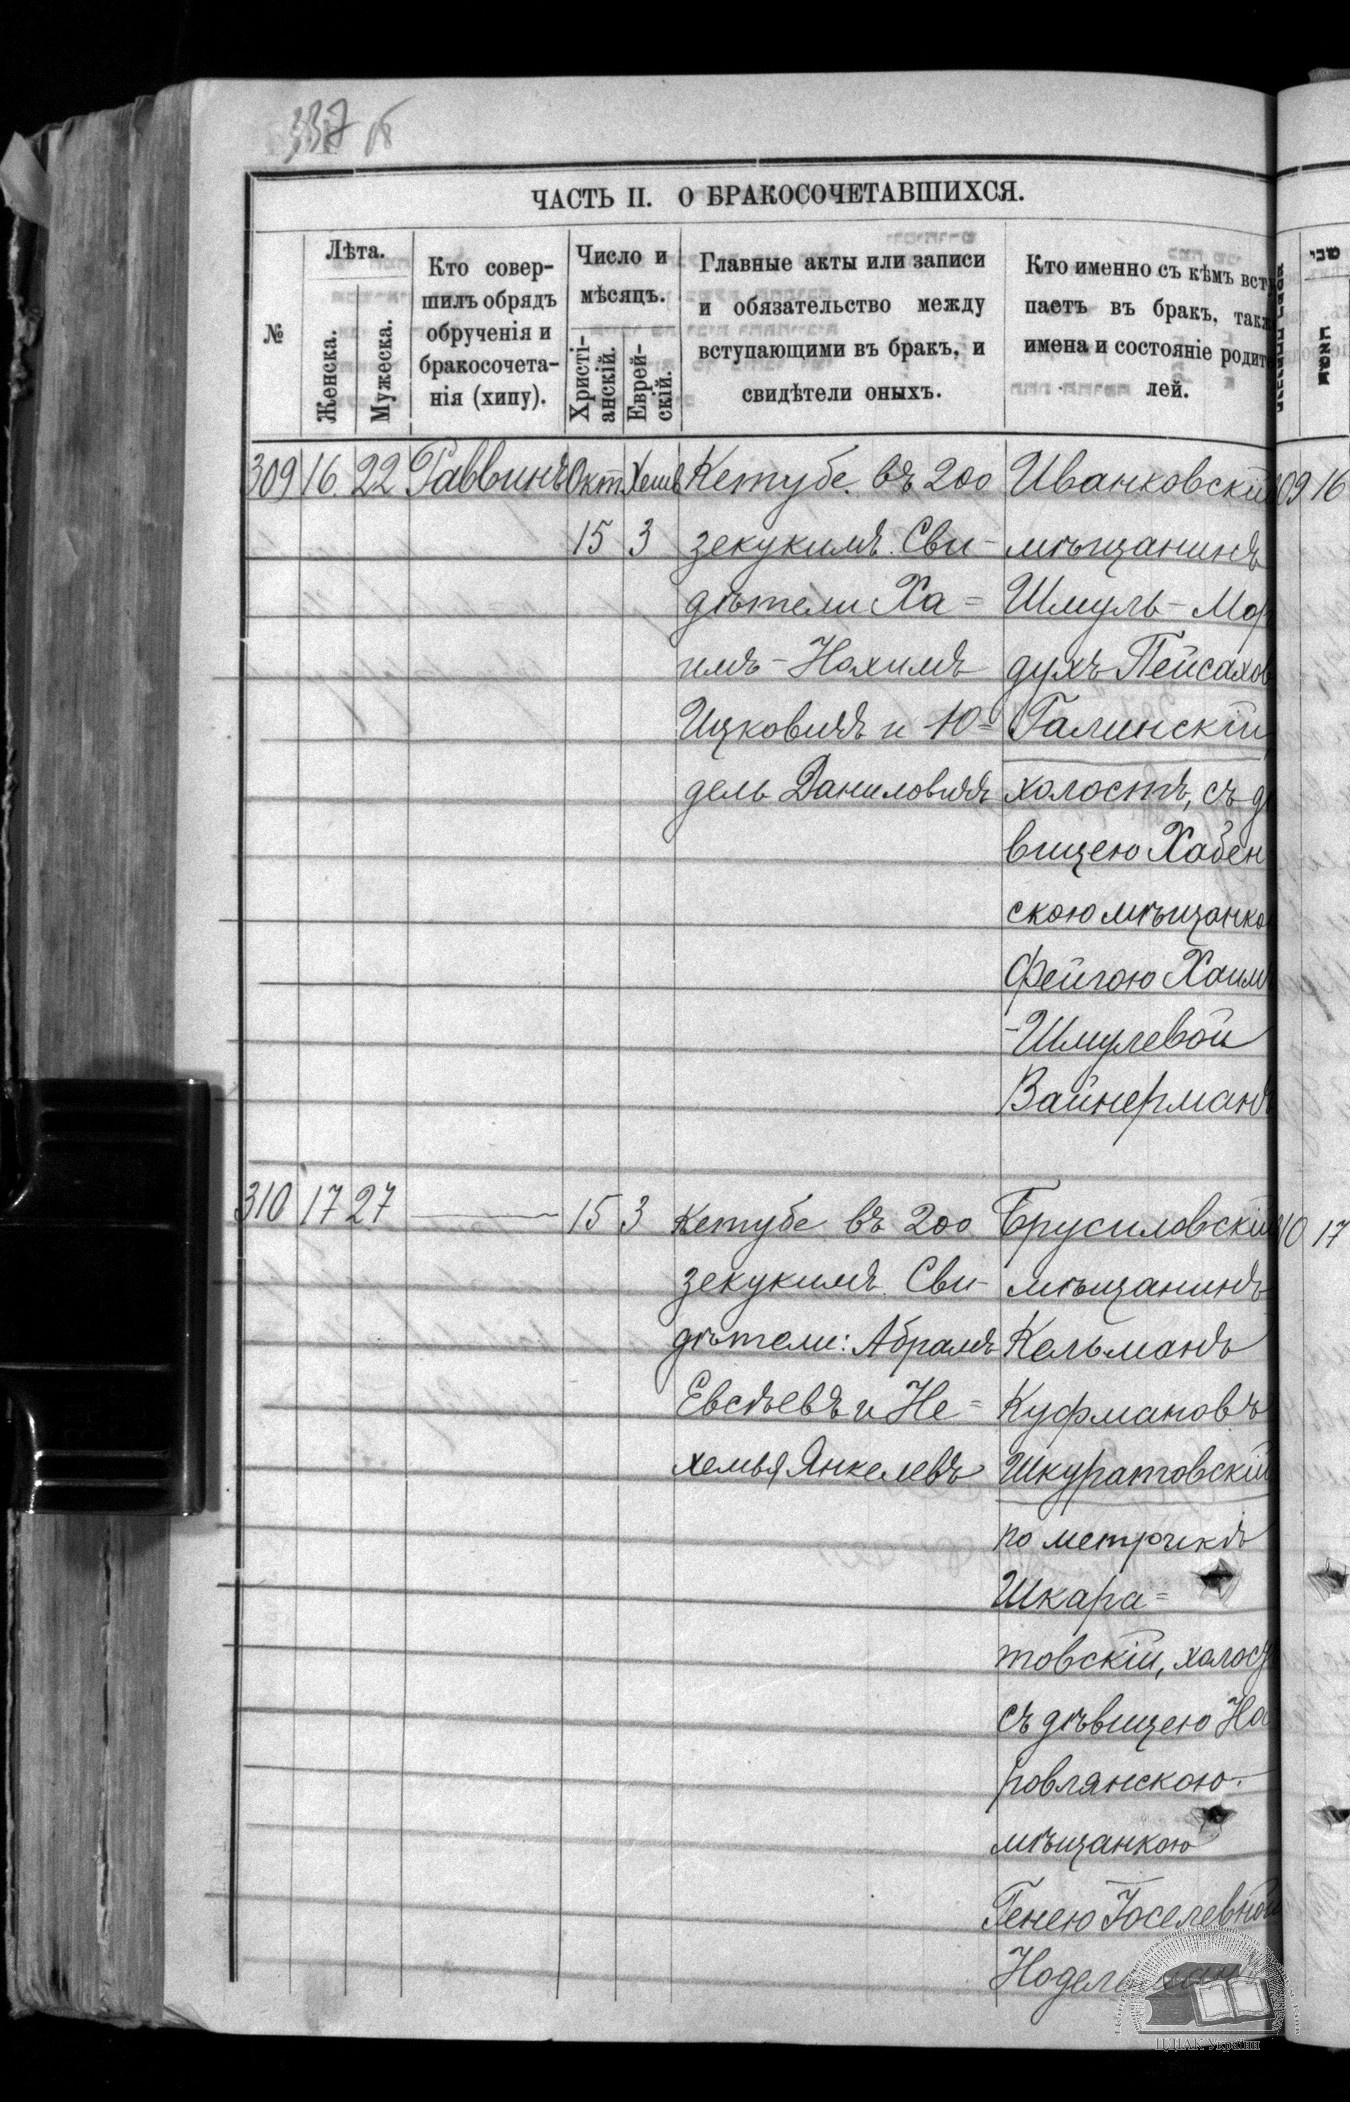 337 об
ЧАСТЬ II. О БРАКОСОЧЕТАВШИХСЯ.
№
Лѣта.
Женска.
Мужеска.
Кто совер-
шилъ обрядъ
обрученія и
бракосочета-
нія (хипу).
Число и
мѣсяцъ.
Христі-
анскій.
Еврей-
скій.
Главные акты или записи
и обязательство между
вступающими въ бракъ, и
свидѣтели оныхъ.
Кто именно съ кѣмъ всту
паетъ въ бракъ, такж
имена и состояніе родите
лей.
309 16 22 Раввинъ Окт Хешв
15 3
Кетубе въ 200
зекукимъ. Сви-
дѣтели Ха=
имъ-Нохимъ
Ицковичъ и Ю=
дель Даниловичъ
Иванковскій
мѣщанинъ
Шмуль-Мор
духъ Пейсахов
Галинскій
холостъ, съ дѣ
вицею Хабен
скою мѣщанко
Фейгою Хаим
-Шмулевой
Вайнерманъ
310 17 27 15 3
Кетубе въ 200
зекукимъ. Сви-
дѣтели: Абрамъ
Евсѣевъ и Не=
хемья Янкелевъ
Брусиловскій
мѣщанинъ
Кельманъ
Куфмановъ
Шкуратовскій
по метрикѣ
Шкара=
товскій, холост
съ дѣвицею На
ровлянскою
мѣщанкою
Генею Іоселевной
Нодельман
09 16
10 17
ЦДІАК України